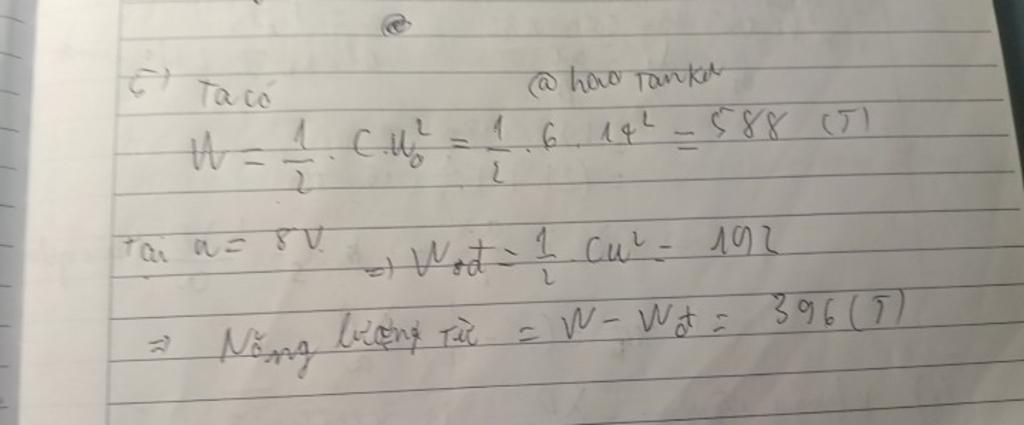 c) Ta có @ haotankd
W = 1/2 . C.U₀² = 1/2 . 6 . 14² = 588 (J)
Tại u = 8V. => Wđ = 1/2 Cu² = 192
=> Năng lượng từ = W - Wđ = 396 (J)